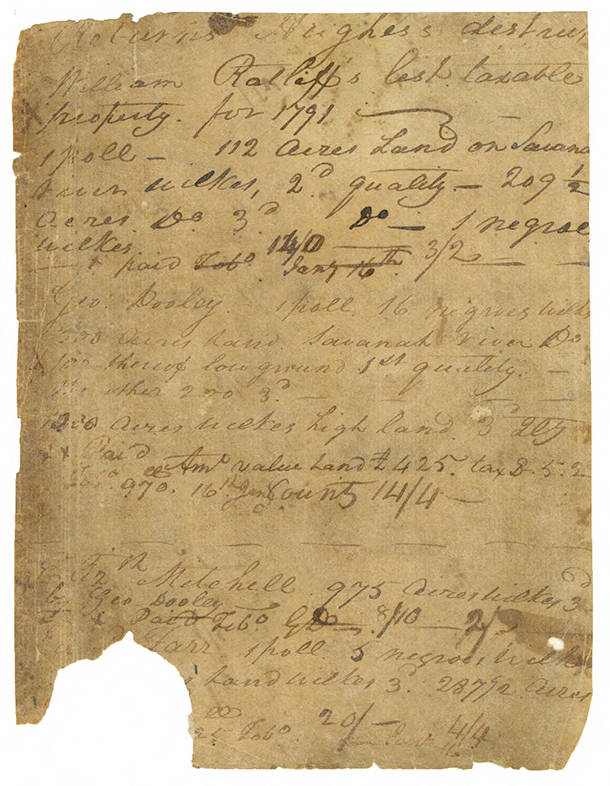 Returns Hughes's destrict
William Ratliff's list taxable
property. for 1791
1 poll — 112 Acres Land on Savana
river wilkes, 2d quality — 209 1/2
Acres Do 3d Do — 1 negroe
wilkes. 14/0 3/2
paid Tobo Jany 16th
Geo. Dooley 1 poll. 16 negroes wilks
Acres Land Savanah river Do
100 thereof low ground 1st quality. —
the other 200 3d. —
Acres wilkes high land. 3d Qlty
Paid Amt value Land £425. tax
970. 16th Jan County 14/4 —
Mitchell 975 Acres wilkes 3d
Geo Dooley
Paid Tobo 8/10 2/
Farr 1 poll 5 negroes wilkes
Land wilkes 3d. 287 1/2 Acres
20/—
25 Tobo. 4/4